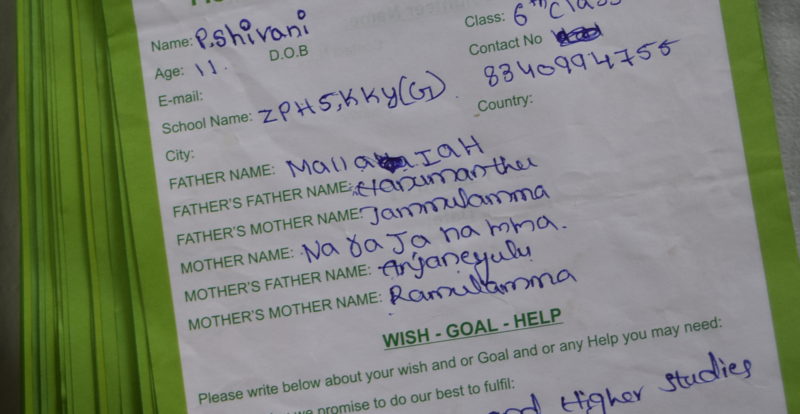 Name: P.Shivani
Class: 6th Class
Age: 11.
D.O.B
Contact No
8340994755
E-mail:
School Name: ZPHS,KKY(G)
Country:
City:
FATHER NAME: Malla IAH
FATHER'S FATHER NAME: Hanumanthu
FATHER'S MOTHER NAME: Jammulamma
MOTHER NAME: NaraJanamma.
MOTHER'S FATHER NAME: Anjaneyulu
MOTHER'S MOTHER NAME: Ramulamma
WISH - GOAL - HELP
Please write below about your wish and or Goal and or any Help you may need:
we promise to do our best to fulfil:
and Higher studies